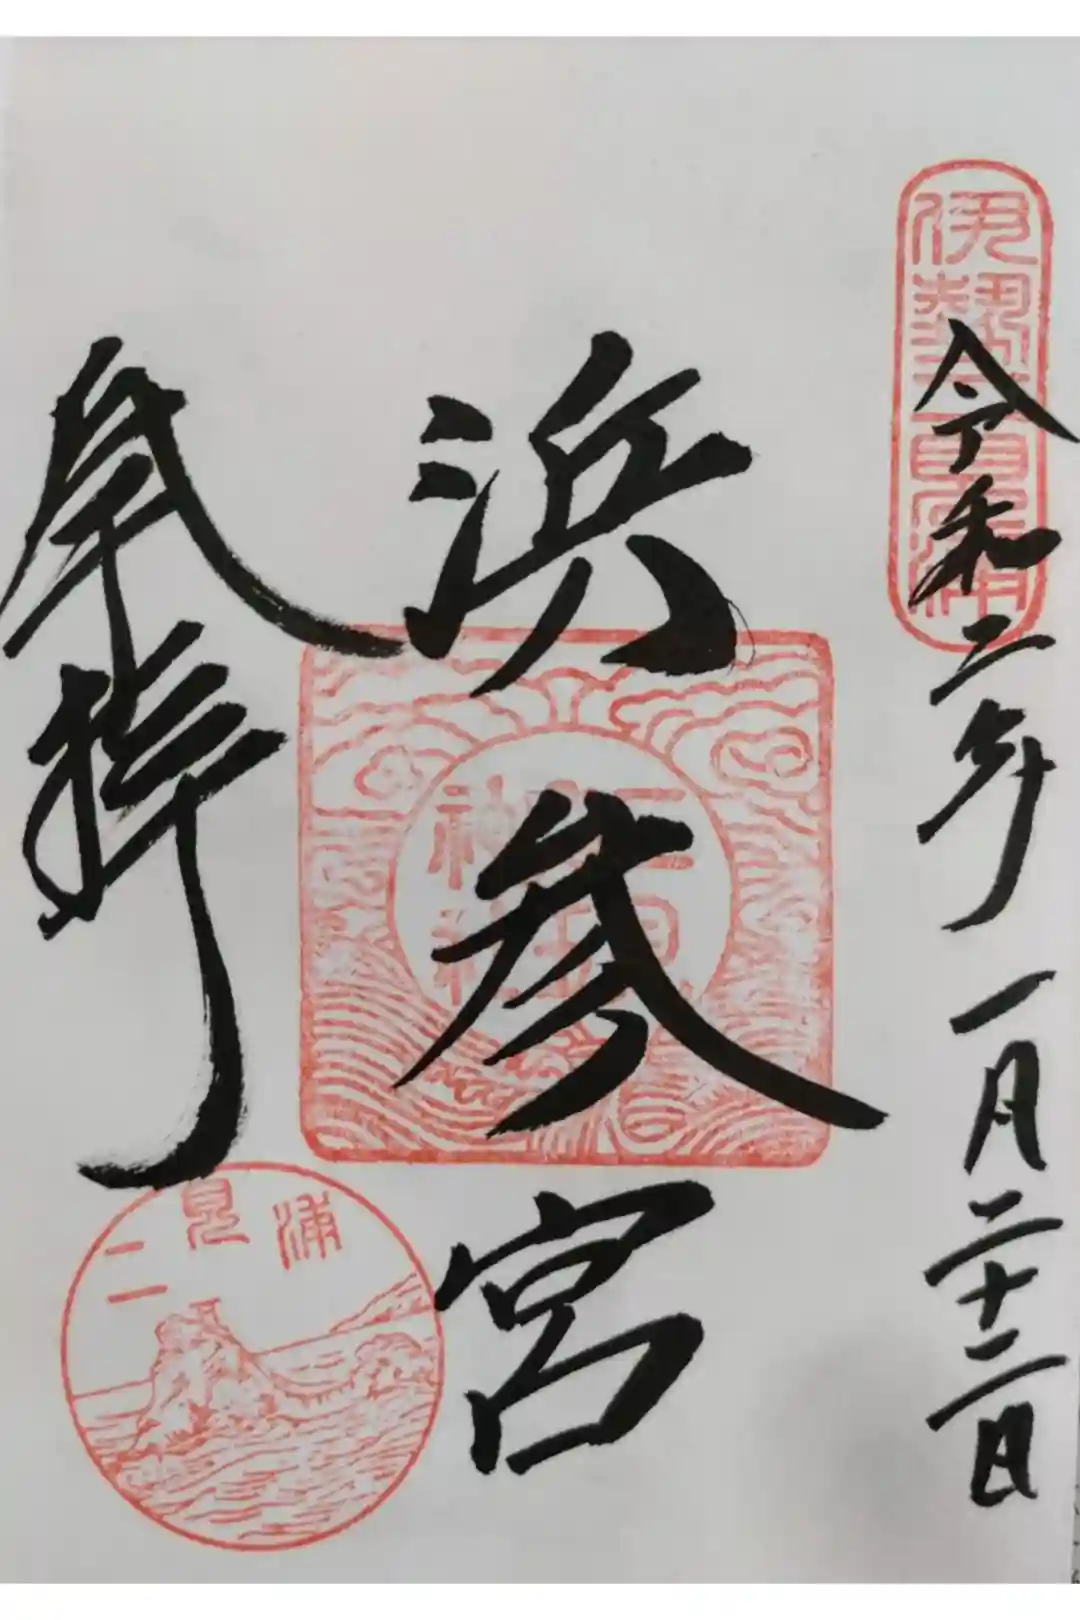 伊勢二見浦
令和二年一月二十二日
浜参宮
二見
興玉
神社
奉拝
二見浦